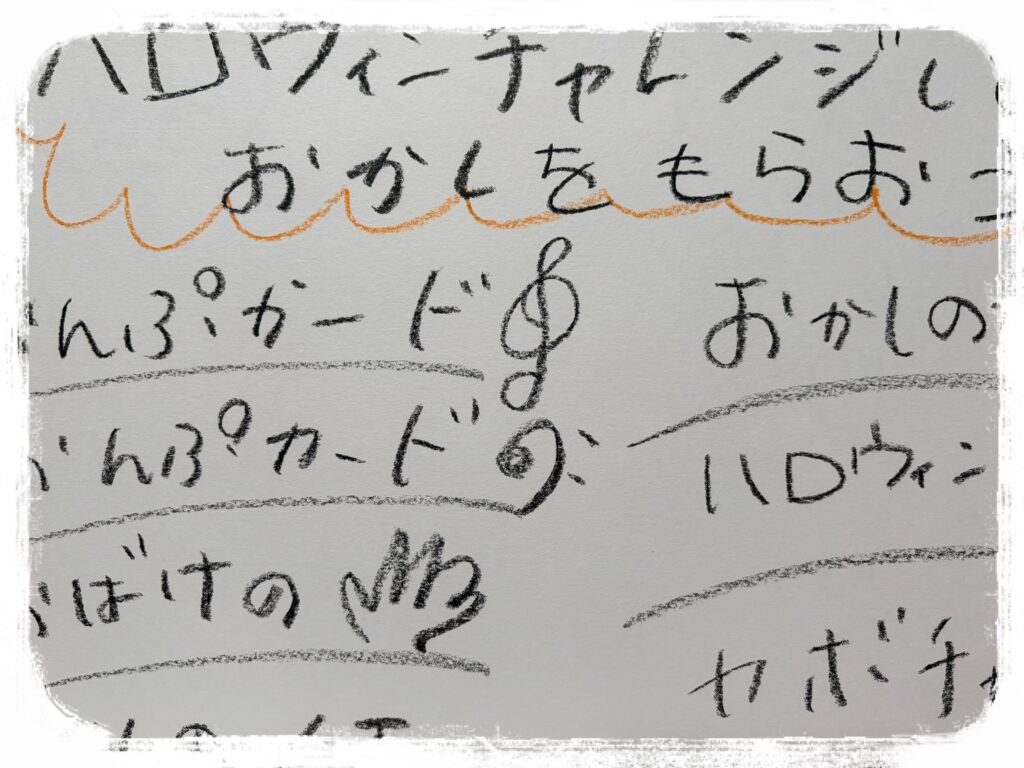 ハロウィンチャレンジし
おかしをもらおこ
んぷカード
んぷカードの
ばけの
おかしの
ハロウィン
カボチャ